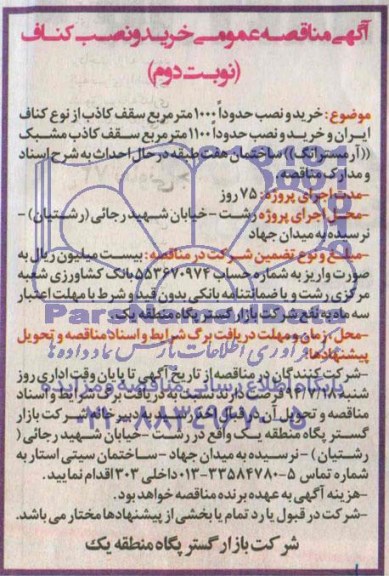 آگهی مناقصه عمومی خرید و نصب کناف
(نوبت دوم)
موضوع: خرید و نصب حدوداً ۱۰۰۰ مترمربع سقف کاذب از نوع کناف
ایران و خرید و نصب حدوداً ۱۱۰۰ مترمربع سقف کاذب مشبک
((آرمسترانگ)) ساختمان هفت طبقه در حال احداث به شرح اسناد
و مدارک مناقصه.
-مدت اجرای پروژه: ۷۵ روز
-محل اجرای پروژه رشت - خیابان شهید رجائی (رشتیان) -
نرسیده به میدان جهاد
-مبلغ و نوع تضمین شرکت در مناقصه: بیست میلیون ریال به
صورت واریز به شماره حساب ۵۵۳۶۷۰۹۷۴ بانک کشاورزی شعبه
مرکزی رشت و یا ضمانتنامه بانکی بدون قید و شرط با مهلت اعتبار
سه ماه به نفع شرکت بازار گستر پگاه منطقه یک.
-محل، زمان و مهلت دریافت برگ شرایط و اسناد مناقصه و تحویل
پیشنهادها:
-شرکت کنندگان در مناقصه از تاریخ آگهی تا پایان وقت اداری روز
شنبه ۹۴/۷/۱۸ فرصت دارند نسبت به دریافت برگ شرایط و اسناد
مناقصه و تحویل آن در قبال اخذ رسید به دبیرخانه شرکت بازار
گستر پگاه منطقه یک واقع در رشت - خیابان شهید رجائی (
رشتیان) - نرسیده به میدان جهاد - ساختمان سیتی استار به
شماره تماس ۵-۳۳۵۸۴۷۸۰-۰۱۳ داخلی ۳۰۳ اقدام نمایید.
-هزینه آگهی به عهده برنده مناقصه خواهد بود.
-شرکت در قبول یا رد تمام یا بخشی از پیشنهادها مختار می باشد.
شرکت بازار گستر پگاه منطقه یک